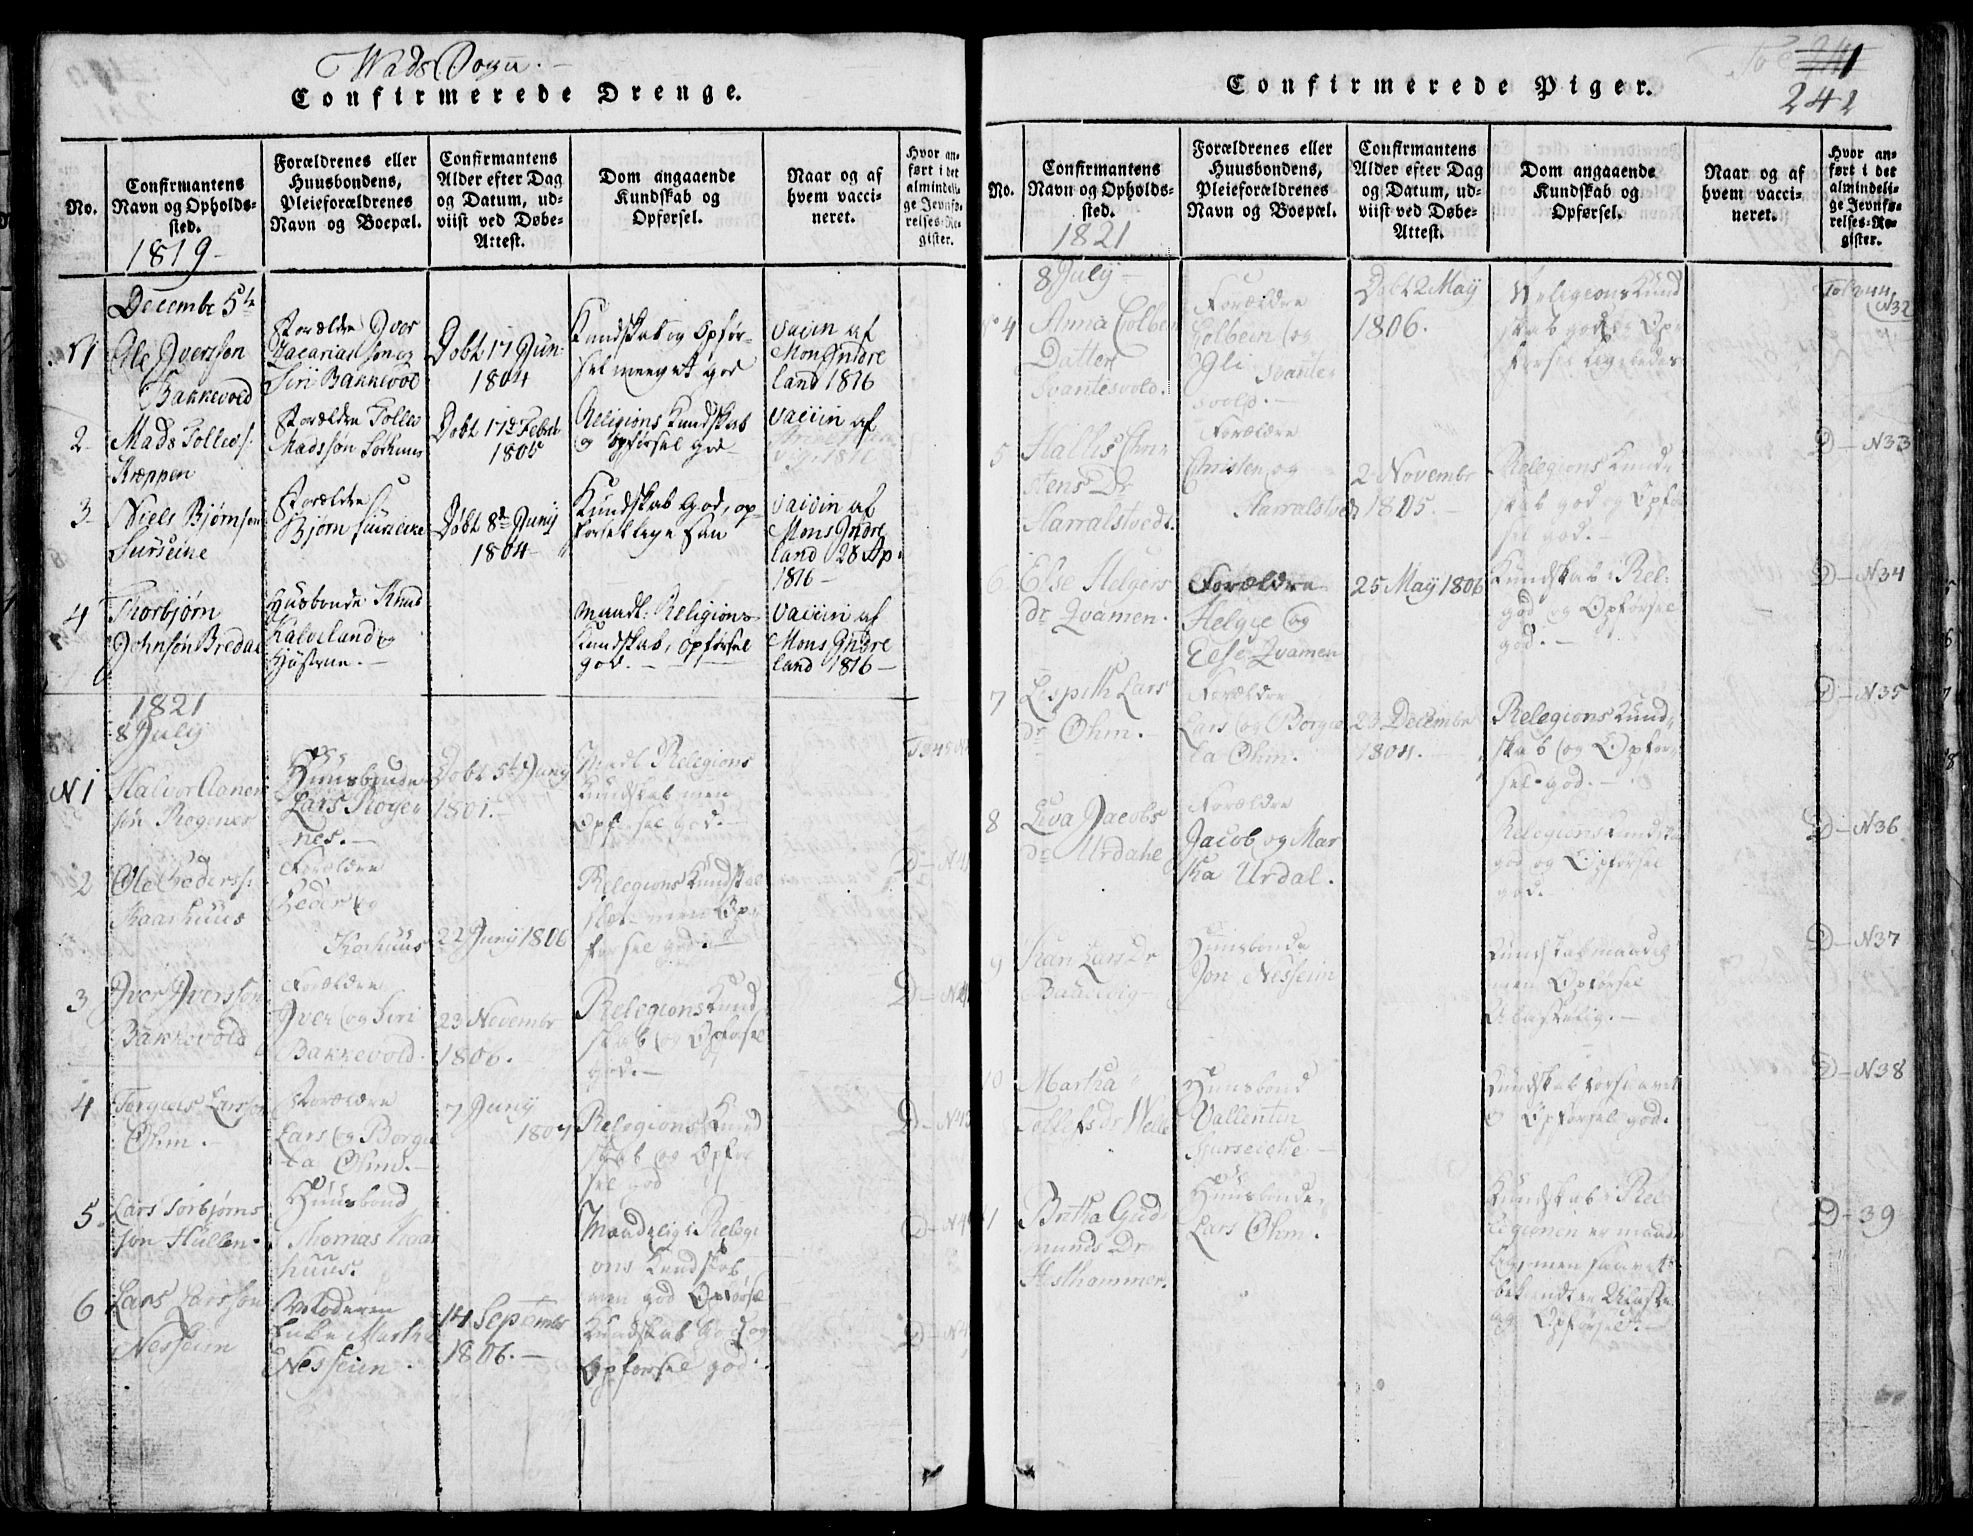 Wads Sogn.
Confirmerede Drenge.
No.
Confirmantens
Navn og Opholds-
sted.
1819
Forældrenes eller
Huusbondens,
Pleieforældrenes
Navn og Boepæl.
Confirmantens
Alder efter Dag
og Datum, ud-
viist ved Døbe-
Attest.
Dom angaaende
Kundskab og
Opførsel.
Naar og af
hvem vacci-
neret.
Hvor an-
ført i det
almindeli-
ge Jevnfø-
relses-Re-
gister.
Decembr 5te
N 1
Ole Iversøn
Bakkevold
Forældre Iver
Zacariassøn og
Siri Bakkevold
Døbt 17 Jun:
1804
Kundskab og Opfør-
sel meeget god
vaccin af
Mons Indre
land 1816
2
Mads Tollevs:
Kreppen
Forældre Tollev
Madssøn
Døbt 17de Febr
1805
Religions Kundskab
og Opførsel god
vaccin af
3
Niels Bjørnsøn
Surseine
Forældre
Bjørn
Døbt 8de Junij
1804
Kundskab God, op-
førsel lige saa
vaccin af
Mons Indre
land 28 Ap:
1816
4
Thorbjørn
JohnsønBredal
Husbonde Knud
Kalveland og
Hustrue.
maadl: Religions
Kundskab, opførsel
god.
vaccin af
Mons Indre
land 1816
1821
8 July
N 1
Halvor Aanen
søn Røgenes
Huusbonde
Lars Røgen
nes.
Døbt 5te Juny
1801.
Madl Religions
Kundskab men
Opførsel god.
2
Ole Peders:
Kaarhuus
Forældre
Peder og
Korhuus
22 Junij 1806
Relegions Kundskab
slet men Op-
førsel god.
3
Iver Iverssøn
Bakkevold
Forældre
Iver og Siri
Bakkevold.
23 Novembr
1806.
Relegions Kund
skab og Opførsel
god.
4
Torgiels Larssøn
Øhm.
Forældre
Lars og Borgil
la Øhm.
7 Junij
1807
Relegions Kund
skab og Opfør
sel god
5
Lars Torbjørns
søn Hullen.
Huusbond
Thomas Kaar
huus.
Maadelig i Relegi
ons Kundskab
men god Opførsel
6
Lars Larssøn
Nesseim
Moderen
Enke Marthe
Nesseien.
14 Septembr
1806.
Kundskab God og
Opførsel god
Confirmerede Piger.
241
No.
Confirmantens
Navn og Opholds-
sted.
1821
Forældrenes eller
Huusbondens,
Pleieforældrenes
Navn og Boepæl.
Confirmantens
Alder efter Dag
og Datum, ud-
viist ved Døbe-
Attest.
Dom angaaende
Kundskab og
Opførsel.
Naar og af
hvem vacci-
neret.
Hvor an-
ført i det
almindeli-
ge Jevnfø-
relses-Re-
gister.
8 July
No 4
Anna Colben
Datter
Svantesvold.
Forældre
Colbein og
Gli Svantes
vold.
Døbt 2 May
1806.
Religions Kund
skab god og Op-
førsel ligeledes
Fol 244
N32
5
Hallis Chri
stens Dr
Harralstvedt.
Forældre
Christen og
Harralstvedt
2 Novembr
1805.
Relegions Kund-
skab god og Opfør
sel god.
D - N33
6
Else Helgies
dr Qvamen.
Forældre
Helgie og
Else Qvamen
25 May 1806
Kundskab i Rel:
god og Opførsel
god.
D - N34
7
Lispith Lars
dr Øhm.
Forældre
Lars og Borgil
la Øhm.
23 Decembr
1804.
Relegions Kund-
skab og Opfør-
sel god.
D - N35
8
Eeva Jacobs
dr Urdahl
Forældre
Jacob og Mar
tha Urdal.
Relegions Kundskab
god og Opførsel
god.
D - N36
9
Kari Lars Dr
Huusbonde
Jon Nesseim
Kundskab maadel
men Opførsel
Ulastelig.
D - N37
10
Martha
Tollefsdr Welle
Huusbond
Vallentin
Surseiche
Kundskab forsvaret
og Opførsel god.
D - N38
11
Britha Gud
munds Dr
Østhammer.
Huusbonde
Lars Øhm.
Kundskab i Re-
legionen er maade
lig, men saavidt
bekiendt er Ulaste
lig Opførsel.
D - 39